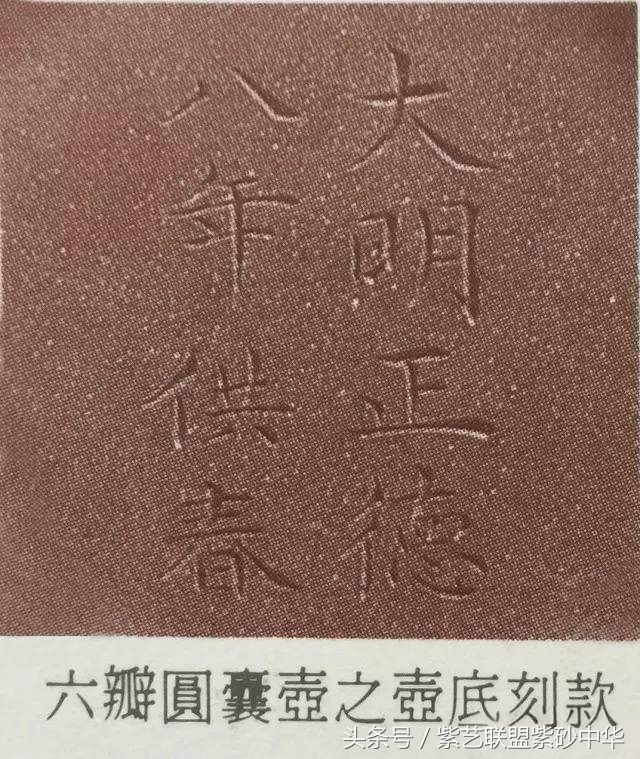 大明正德
八年供春
六瓣圓囊壺之壺底刻款
头条号／紫艺联盟紫砂中华